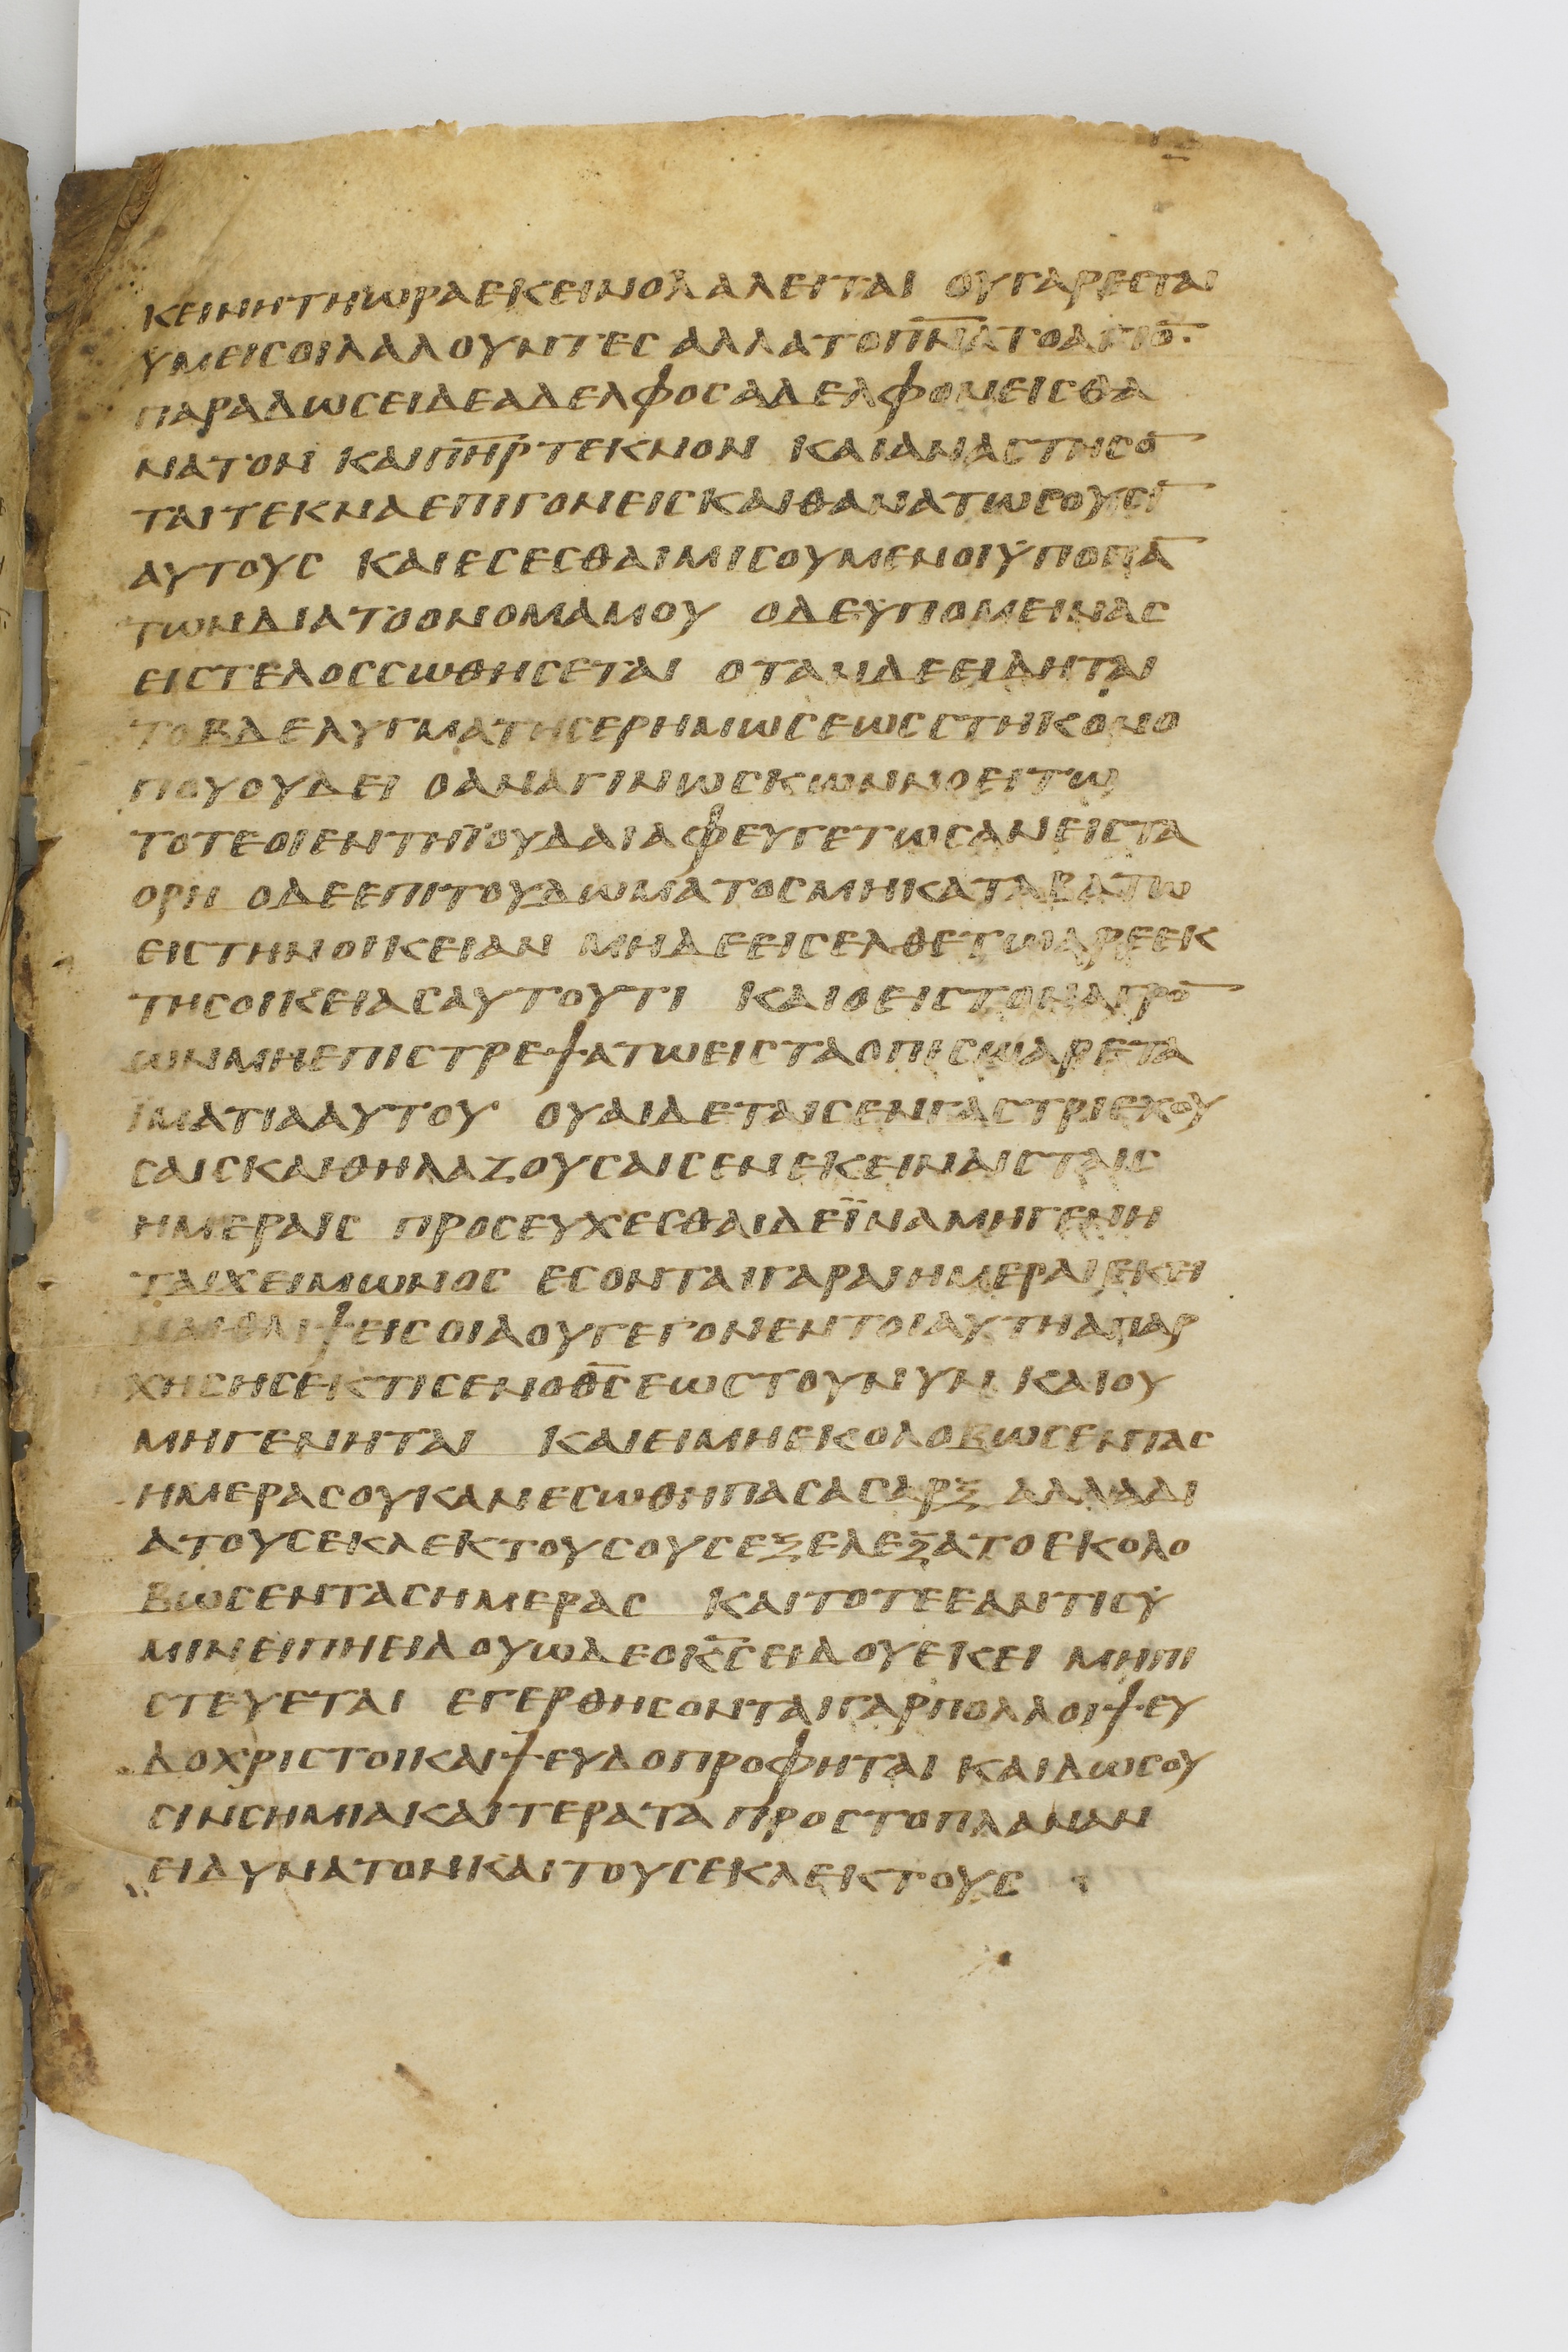 ΚΕΙΝΗΤΗΩΡΑΕΚΕΙΝΟΛΑΛΕΙΤΑΙ ΟΥΓΑΡΕΣΤΑΙ
ΥΜΕΙϹΟΙΛΑΛΟΥΝΤΕϹ ΑΛΛΑΤΟΠ̅Ν̅Α̅ΤΟΑΓΙΟ̅·
ΠΑΡΑΔΩϹΕΙΔΕΑΔΕΛΦΟϹΑΔΕΛΦΟΝΕΙϹΘΑ
ΝΑΤΟΝ ΚΑΙΠ̅Η̅Ρ̅ΤΕΚΝΟΝ ΚΑΙΑΝΑϹΤΗϹΟ̅
ΤΑΙΤΕΚΝΑΕΠΙΓΟΝΕΙϹΚΑΙΘΑΝΑΤΩϹΟΥϹΙ̅
ΑΥΤΟΥϹ ΚΑΙΕϹΕϹΘΑΙΜΙϹΟΥΜΕΝΟΙΫΠΟΠΑ̅
ΤΩΝΔΙΑΤΟΟΝΟΜΑΜΟΥ ΟΔΕΥΠΟΜΕΙΝΑϹ
ΕΙϹΤΕΛΟϹϹΩΘΗϹΕΤΑΙ ΟΤΑΝΔΕΕΙΔΗΤΑΙ
ΤΟΒΔΕΛΥΓΜΑΤΗϹΕΡΗΜΩϹΕΩϹϹΤΗΚΟΝΟ
ΠΟΥΟΥΔΕΙ ΟΑΝΑΓΙΝΩϹΚΩΝΝΟΕΙΤΩ
ΤΟΤΕΟΙΕΝΤΗΪΟΥΔΑΙΑΦΕΥΓΕΤΩϹΑΝΕΙϹΤΑ
ΟΡΗ ΟΔΕΕΠΙΤΟΥΔΩΜΑΤΟϹΜΗΚΑΤΑΒΑΤΩ
ΕΙϹΤΗΝΟΙΚΕΙΑΝ ΜΗΔΕΕΙϹΕΛΘΕΤΩΑΡΕΕΚ
ΤΗϹΟΙΚΕΙΑϹΑΥΤΟΥΤΙ ΚΑΙΟΕΙϹΤΟΝΑΓΡΟ̅
ΩΝΜΗΕΠΙϹΤΡΕΨΑΤΩΕΙϹΤΑΟΠΙϹΩΑΡΕΤΑ
ΙΜΑΤΙΑΑΥΤΟΥ ΟΥΑΙΔΕΤΑΙϹΕΝΓΑϹΤΡΙΕΧΟΥ
ϹΑΙϹΚΑΙΘΗΛΑΖΟΥϹΑΙϹΕΝΕΚΕΙΝΑΙϹΤΑΙϹ
ΗΜΕΡΑΙϹ ΠΡΟϹΕΥΧΕϹΘΑΙΔΕΪΝΑΜΗΓΕΝΗ
ΤΑΙΧΕΙΜΩΝΟϹ ΕϹΟΝΤΑΙΓΑΡΑΙΗΜΕΡΑΙΕΚΕΙ
ΝΑΙΘΛΙΨΕΙϹΟΙΑΟΥΓΕΓΟΝΕΝΤΟΙΑΥΤΗΑΠΑΡ
ΧΗϹΗϹΕΚΤΙϹΕΝΟΘ̅Ϲ̅ΕΩϹΤΟΥΝΥΝ ΚΑΙΟΥ
ΜΗΓΕΝΗΤΑΙ ΚΑΙΕΙΜΗΕΚΟΛΟΒΩϹΕΝΤΑϹ
ΗΜΕΡΑϹΟΥΚΑΝΕϹΩΘΗΠΑϹΑϹΑΡΞ ΑΛΛΑΔΙ
ΑΤΟΥϹΕΚΛΕΚΤΟΥϹΟΥϹΕΞΕΛΕΞΑΤΟΕΚΟΛΟ
ΒΩϹΕΝΤΑϹΗΜΕΡΑϹ ΚΑΙΤΟΤΕΕΑΝΤΙϹΫ
ΜΙΝΕΙΠΗΕΙΔΟΥΩΔΕΟΧ̅Ϲ̅ΕΙΔΟΥΕΚΕΙ ΜΗΠΙ
ϹΤΕΥΕΤΑΙ ΕΓΕΡΘΗϹΟΝΤΑΙΓΑΡΠΟΛΛΟΙΨΕΥ
ΔΟΧΡΙϹΤΟΙΚΑΙΨΕΥΔΟΠΡΟΦΗΤΑΙ ΚΑΙΔΩϹΟΥ
ϹΙΝϹΗΜΙΑΚΑΙΤΕΡΑΤΑΠΡΟϹΤΟΠΛΑΝΑΝ
ΕΙΔΥΝΑΤΟΝΚΑΙΤΟΥϹΕΚΛΕΚΤΟΥϹ